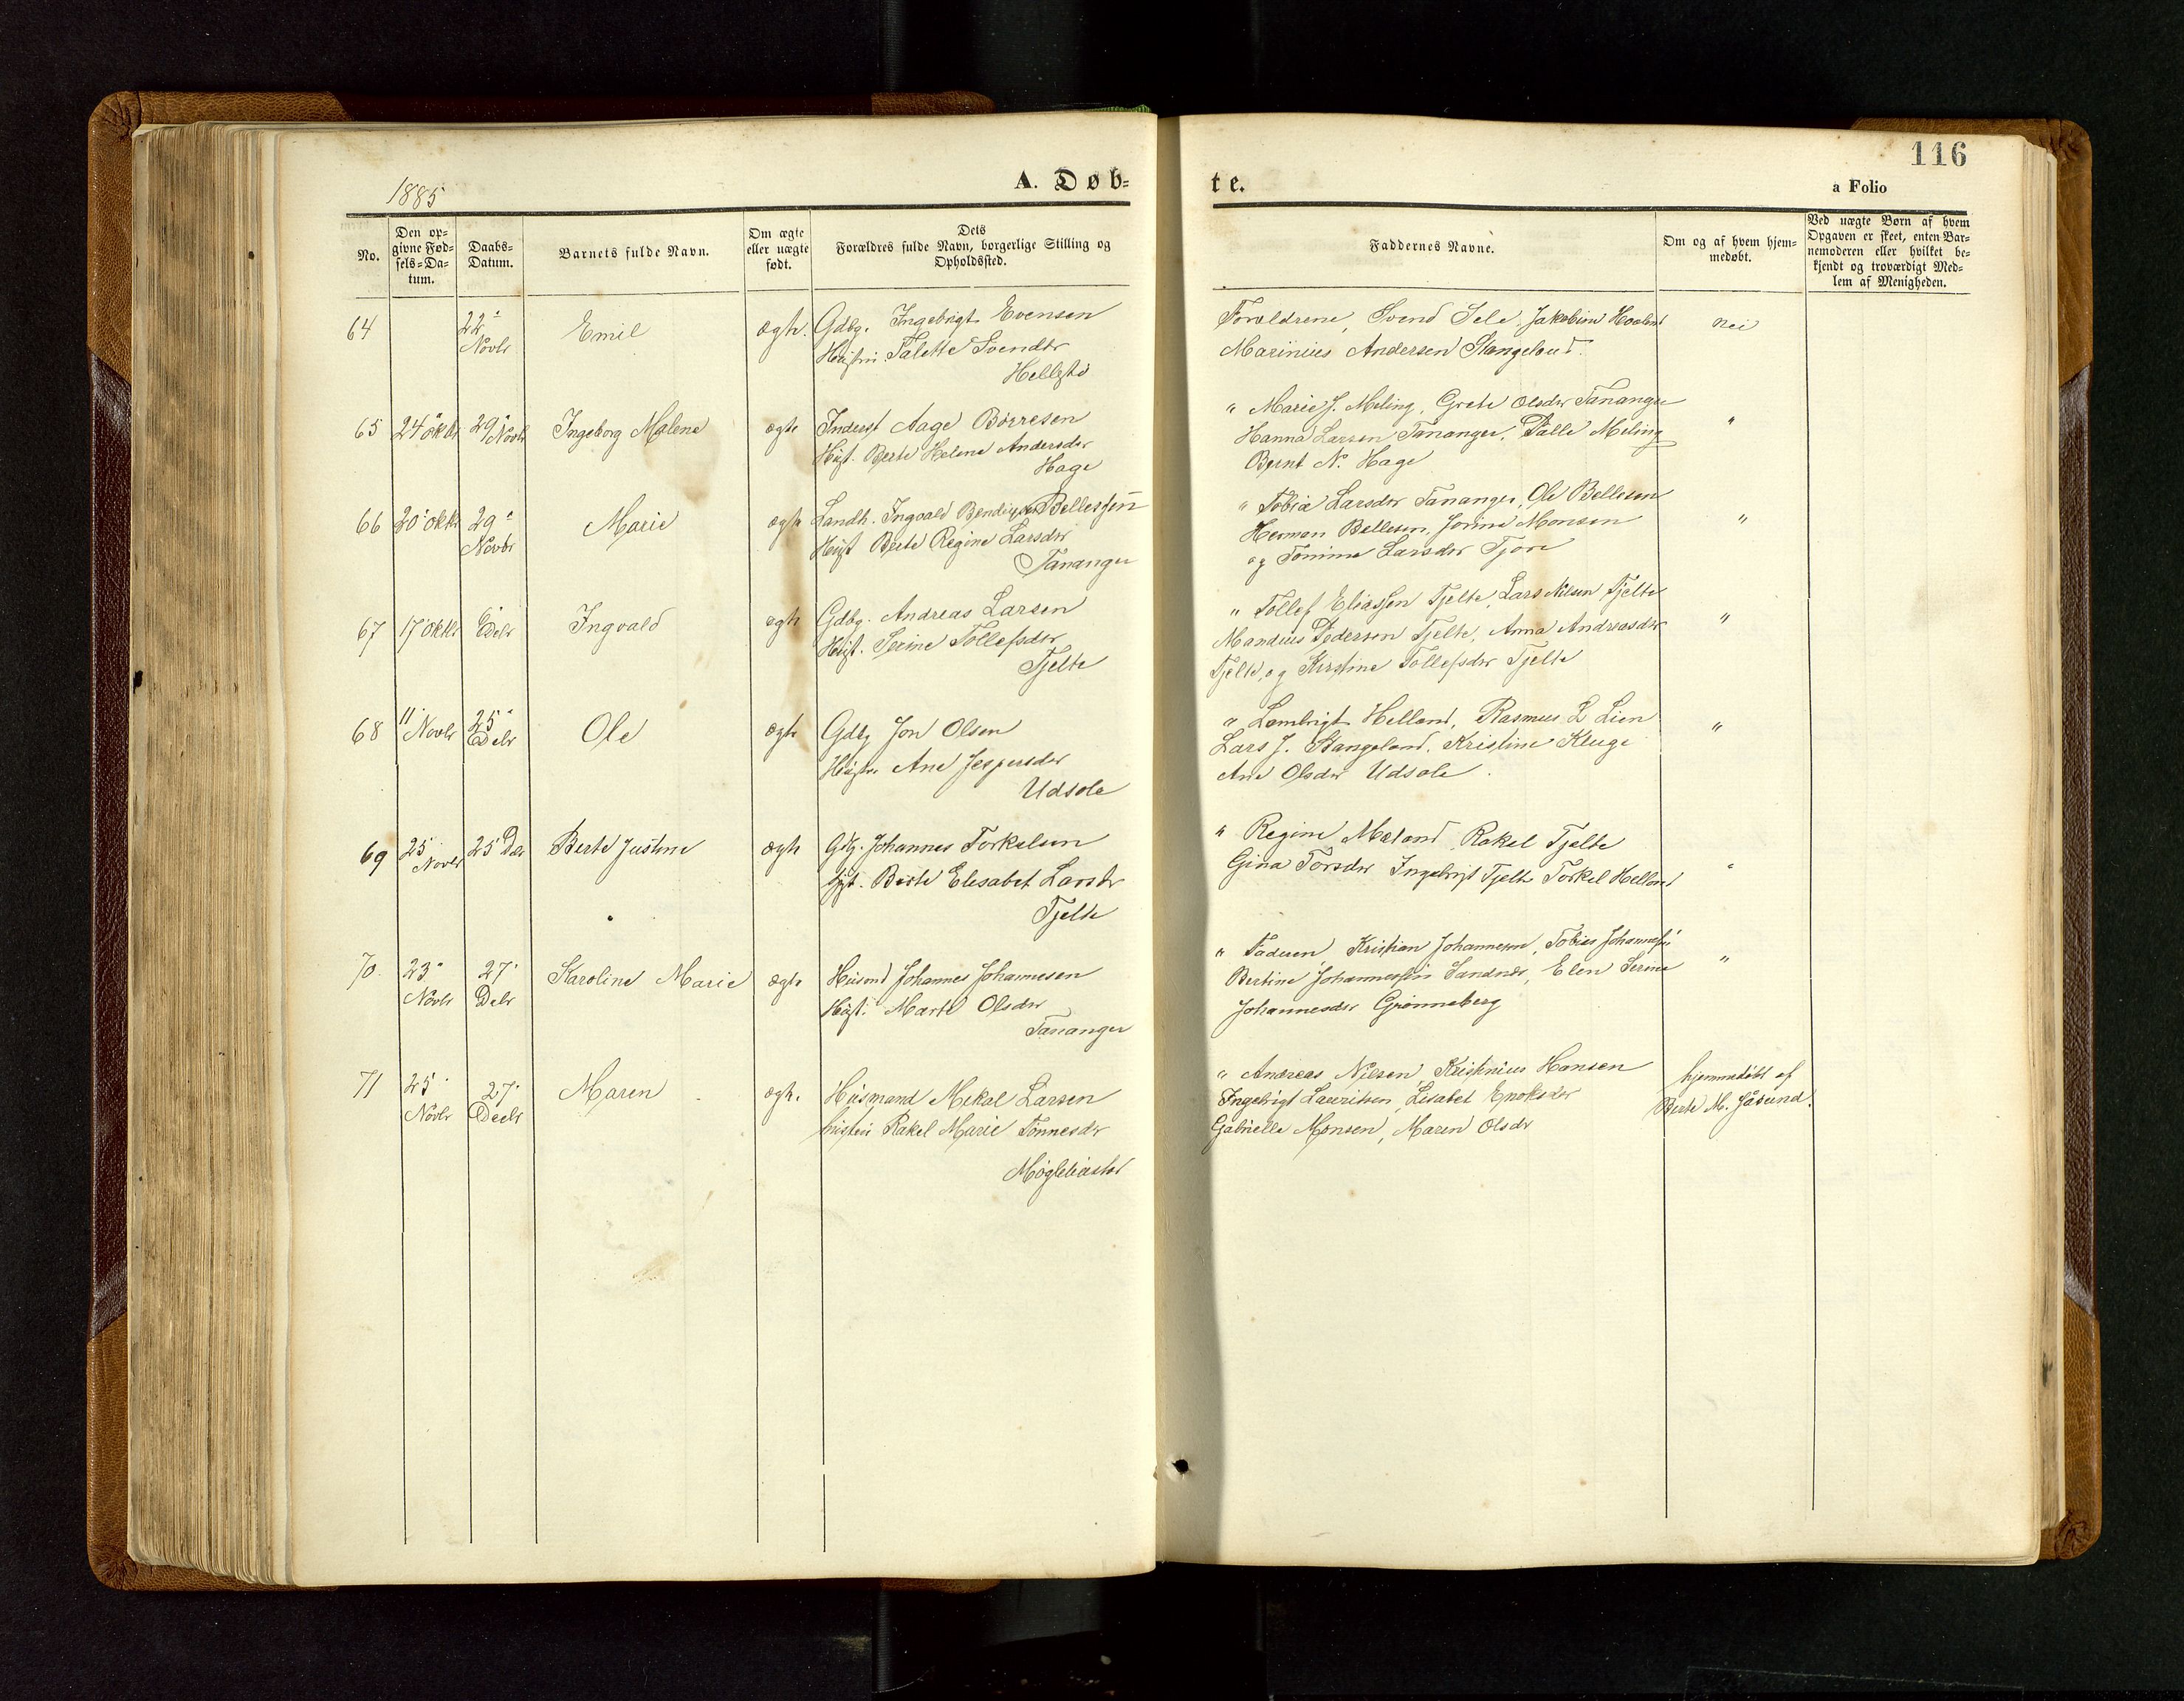 116
1885
A. Døb-
te.
a Folio
No.
Den op-
givne Fød-
sels-Da-
tum.
Daabs-
Datum.
Barnets fulde Navn.
Om ægte
eller uægte
født.
Dets
Forældres fulde Navn, borgerlige Stilling og
Opholdssted.
Faddernes Navne.
Om og af hvem hjem-
medøbt.
Ved uægte Børn af hvem
Opgaven er skeet, enten Bar-
nemoderen eller hvilket be-
kjendt og troværdigt Med-
lem af Menigheden.
64
22
Novbr
Emil
ægte.
Gdbg. Ingebrigt Evensen
Hustru Talette Svendtr
Hellestø
Forældrene, Svend Sele, Jakobine Haaland
Marinius Andersen Stangeland
nei
65
24 oktbr
29 Novbr
Ingeborg Malene
ægte
Inderst Aage Børresen
Hust. Berte Helene Andersdr
Hage
" Marie J. Meling, Grete Olsdr Tananger
Hanna Larsen Tananger, Palle Meling
Bernt N. Hage
"
66
20 oktbr
29
Novbr
Marie
ægte
Landh. Ingvald Bellessen
Hust Berte Regine Larsdr
Tananger
" Tobia Larsdr Tananger, Ole Bellesen
Herman Bellesen, Jorine Monsen
og Tomine Larsdr Tjore
"
67
17 oktbr
Debr
Ingvald
ægte
Gdbg. Andreas Larsen
Hust. Serine Tollefsdr
Tjelte
" Tollef Eliassen Tjelte, Lars Nilsen Tjelte
Mandius Pedersen Tjelte, Anna Andreasdr
Tjelte, og Kirstine Tollefsdr Tjelte
"
68
11 Novbr
25
Debr
Ole
ægte
Gdbg Jon Olsen
Hustru Ane Jespersdr
Udsole
" Lambrigt Helland, Rasmus L Lien
Lars J. Stangeland, Kristine Kluge
Ane Olsdr Udsole
"
69
25
Novbr
25 Dbr
Berte Justine
ægte
Gdbg. Johannes Torkelsen
Hust. Berte Elisabet Larsdr
Tjelte
" Regine Mæland Rakel Tjelte
Gina Torsdr Ingebrigt Tjelte Torkel Helland
"
70.
23
Novbr
27
Debr
Karoline Marie
ægte
Husmd Johannes Johannesen
Hust. Marte Olsdr
Tananger
" Faderen Kristian Johannesen, Tobias Johannessen
Bertine Johannessen Sandnes, Elen Serine
Johannesdr Grønneberg
"
71
25
Novbr
27
Decbr
Maren
ægte.
Husmand Mikal Larsen
hustru Rakel Marie Tønnesdr
" Andreas Nilsen, Kristinius Hansen
Ingebrigt Lauritsen, Lisabet Enoksdr
Gabrielle Monsen, Maren Olsdr
hjemmedøbt af
Berte M. Jåsund.